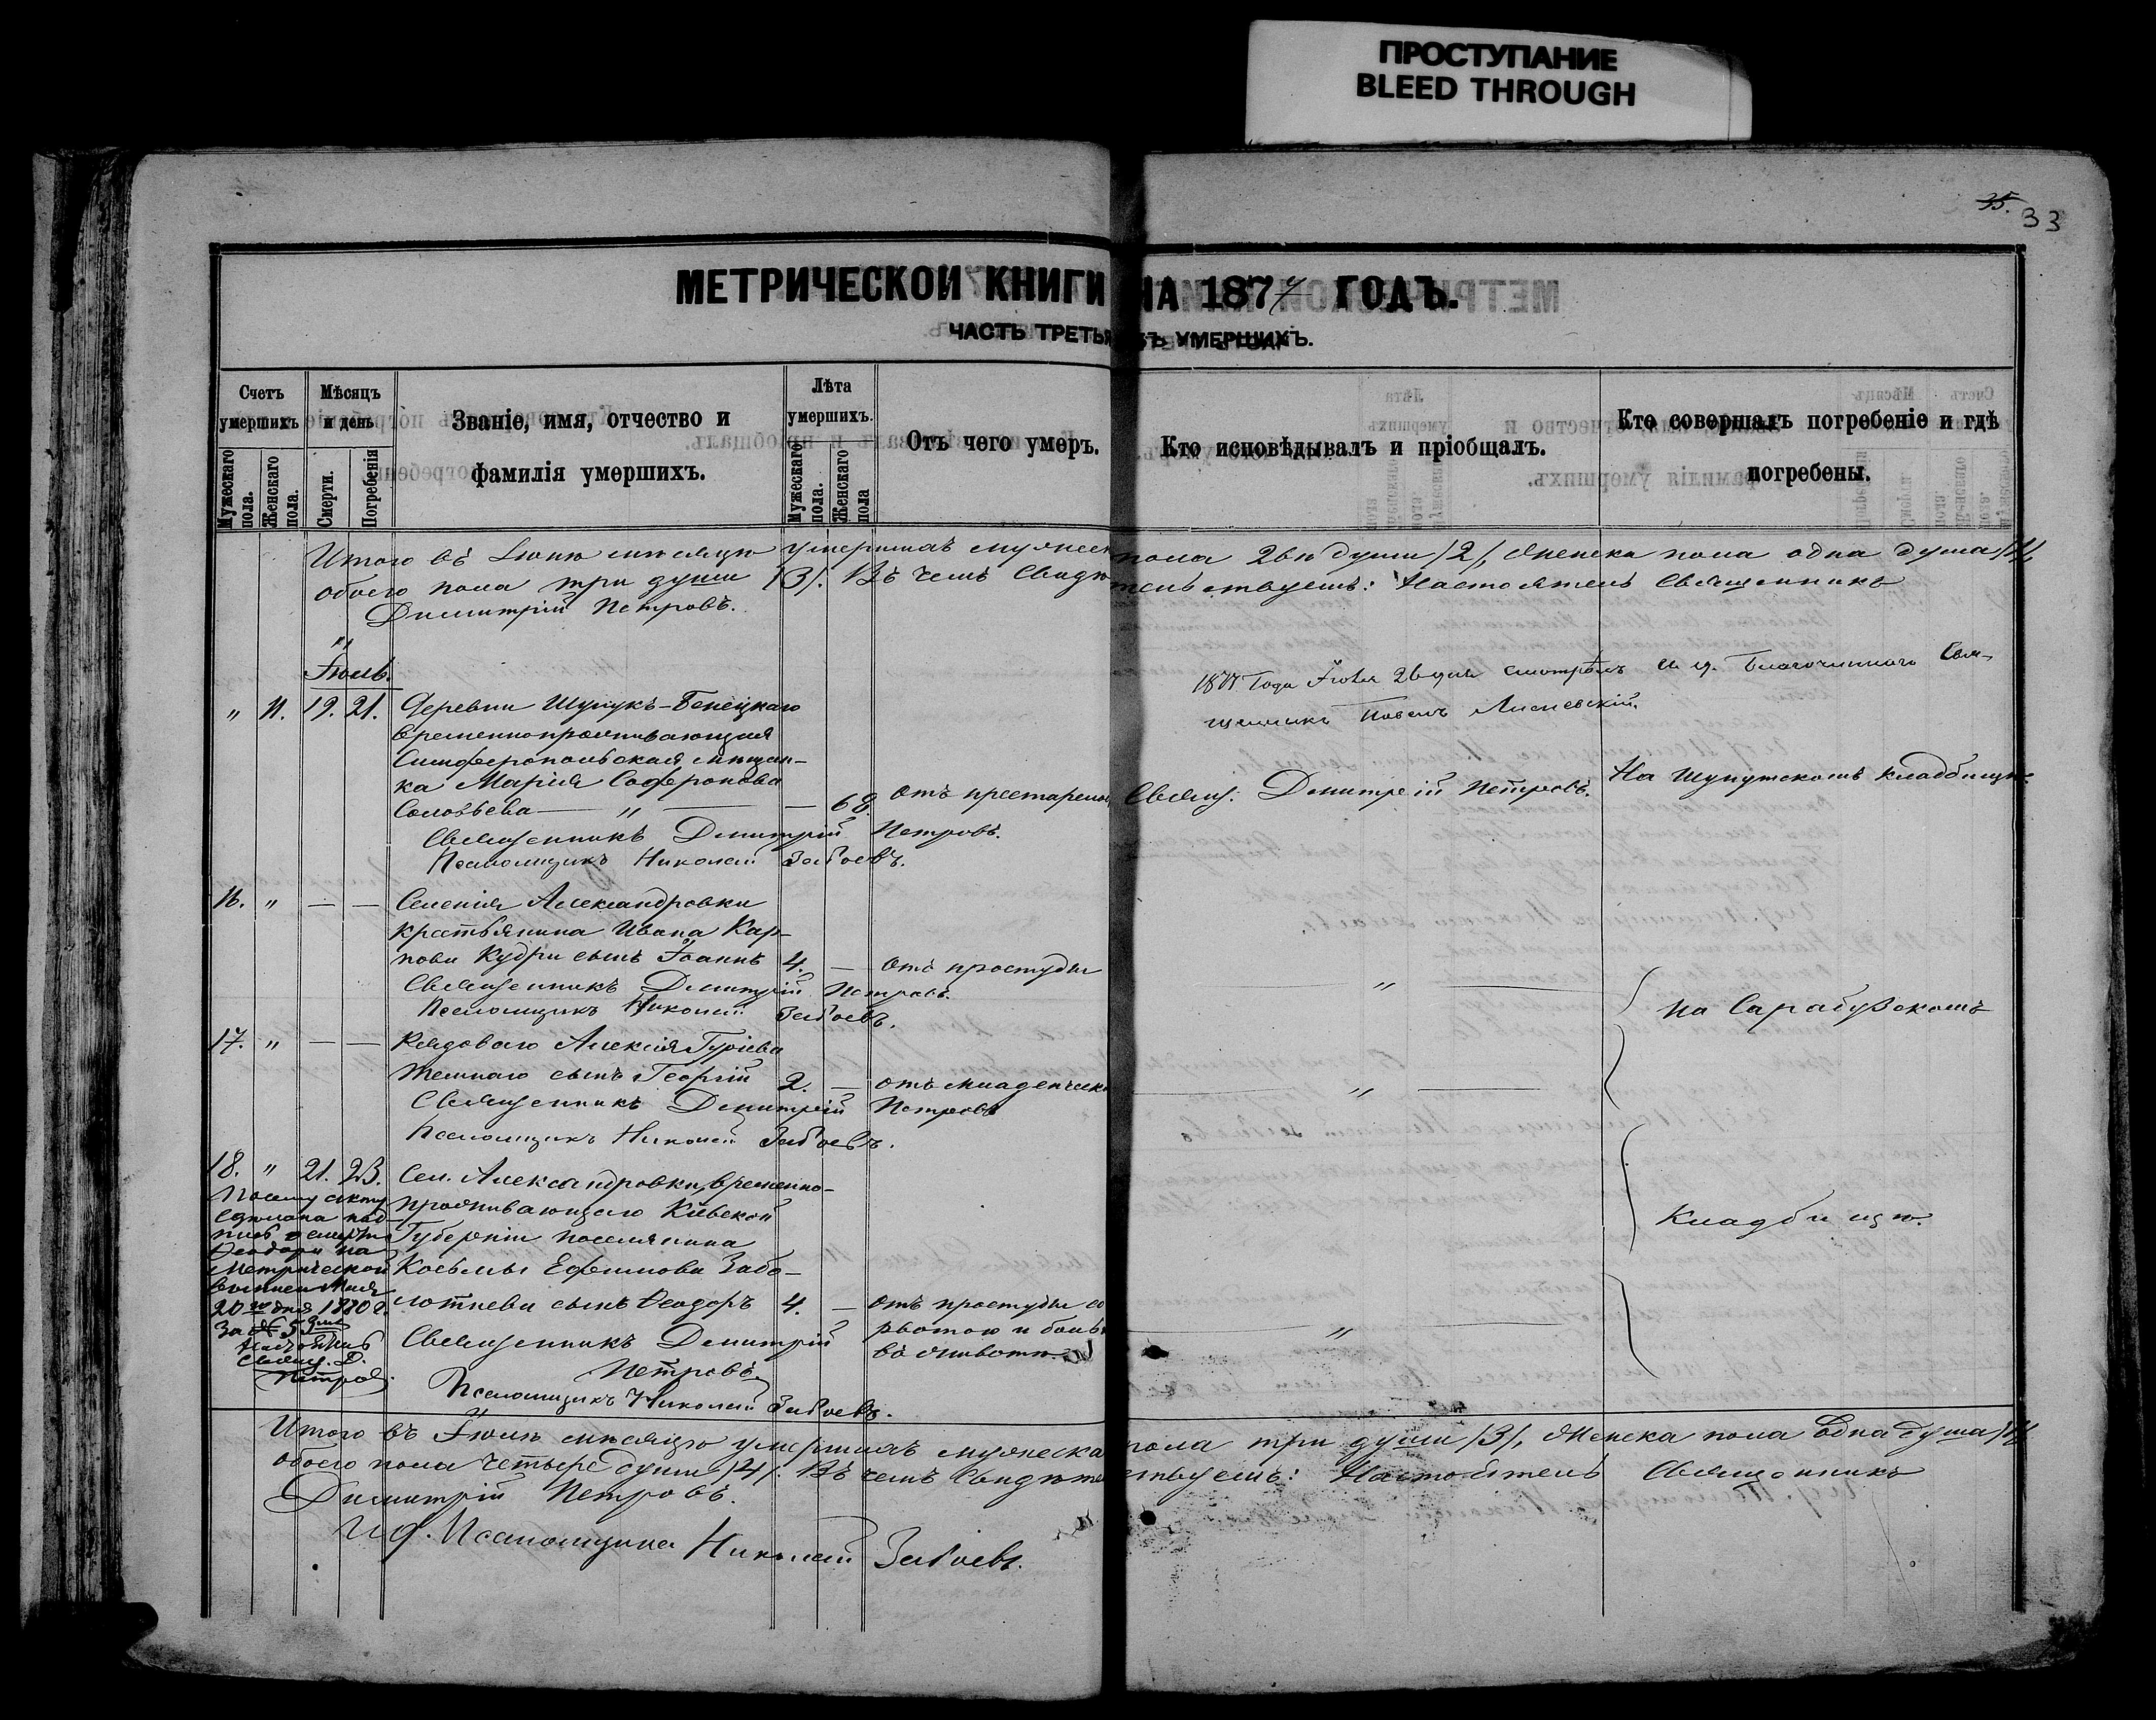 ПРОСТУПАНИЕ
BLEED THROUGH
35.
33
МЕТРИЧЕСКОЙ КНИГИ НА 1877 ГОДЪ.
ЧАСТЬ ТРЕТЬЯ УМЕРШИХЪ.
Счетъ умершихъ
Мужескаго пола.
Женскаго пола.
Мѣсяцъ и день
Смерти.
Погребенія
Званіе, имя, отчество и
фамилія умершихъ.
Лѣта умершихъ.
Мужескаго пола.
Женскаго пола
Отъ чего умеръ.
Кто исповѣдывалъ и пріобщалъ.
Кто совершалъ погребеніе и гдѣ
погребены.
Итого въ Іюнѣ мѣсяцѣ умершихъ мужеск пола двѣ души /2/, Женска пола одна душа /1/,
обоего пола три души /3/. Въ чемъ Свидѣтельствуемъ: Настоятель Священникъ
Димитрій Петровъ.
Іюль.
1877 Года Іюля 26 дня смотрѣлъ и. д. Благочиннаго Свя-
щенникъ Павелъ
" 11. 19. 21. Деревни
временнопроживающая
Симферопольская мѣщан-
ка Марія Софронова
Соловьева — " — — 68. отъ престарелос Свящ: Димитрій Петровъ. На кладбищѣ.
Священникъ Димитрій Петровъ.
Псаломщикъ Николай
16. " — — Селенія Александровки
крестьянина Ивана Кар-
пова Кудри сынъ Іоаннъ 4. — отъ простуды "
Священникъ Димитрій Петровъ.
Псаломщикъ Николай
на Сарабузскомъ
17. " — — Рядоваго Алексія Гуріева
сынъ Георгій 2. — отъ младенческ "
Священникъ Димитрій Петровъ
Псаломщикъ Николай
18. " 21. 23. Сел. Александровки, временно-
проживающаго Кіевской
Губерніи поселянина
Косьмы Ефимова Забо-
лотнева сынъ Ѳеодоръ 4. — отъ простуды со "
рвотою и боль
въ животѣ
Кладбищѣ.
Священникъ Димитрій
Петровъ.
Псаломщикъ Николай
Посему акту
пись о смерти
Ѳеодора на
Метрической
20го дня 1880 г.
за № 5
Свящ. Д.
Петровъ
Итого въ Іюлѣ мѣсяцѣ умершихъ мужеска пола три души /3/, Женска пола Одна душа /1/
обоего пола четыре души /4/. Въ чемъ Свидѣтельствуемъ: Настоятель Священникъ
Димитрій Петровъ.
И. д. Псаломщика Николай